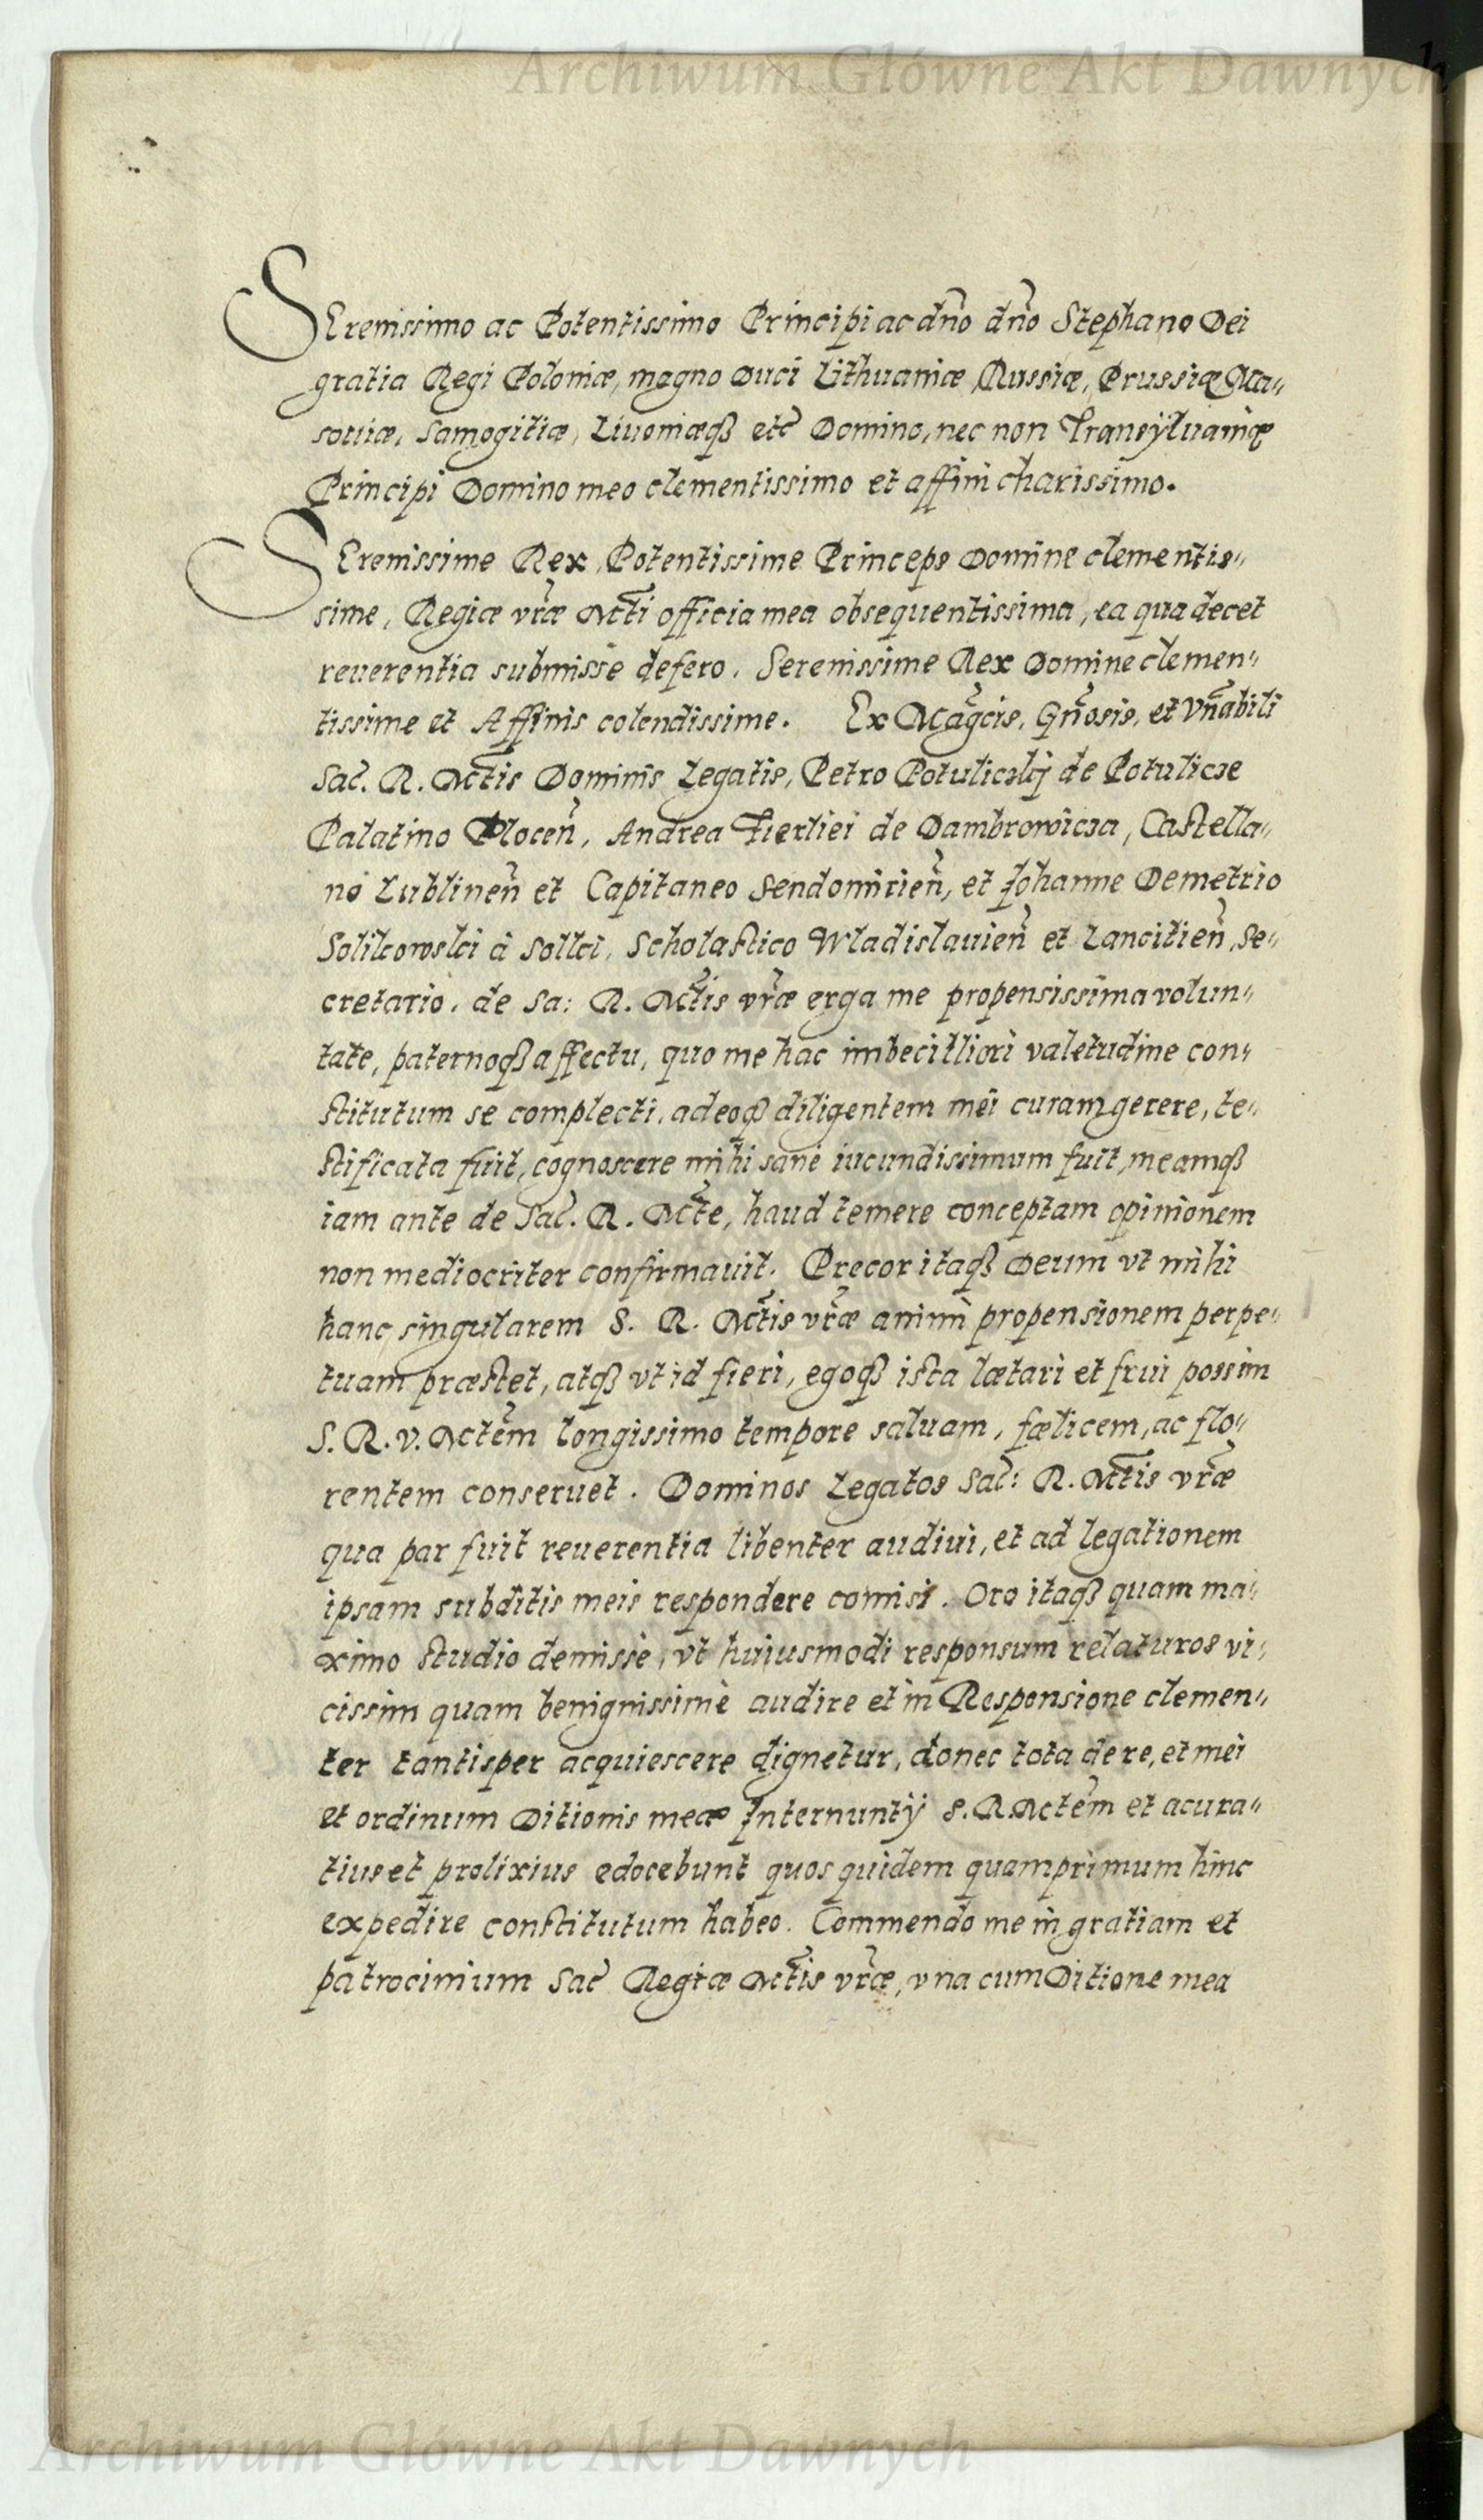 Archiwum Główne Akt Dawnych
SErenissimo ac Potentissimo Principi ac dño dño Stephano Dei
gratia Regi Poloniæ, magno Duci Lithuaniæ, Russiæ, Prussiæ Ma„
souiæ, Samogitiæ, Liuoniæqꝫ etc̃ Domino, nec non Transyluaniæ
Principi Domino meo clementissimo et affini charissimo.
SErenissime Rex, Potentissime Princeps Domine clementis„
sime, Regiæ vr̃æ Mt̃ti officia mea obsequentissima, ea qua decet
reuerentia submisse defero. Serenissime Rex Domine clemen„
tissime et Affinis colendissime. Ex Mag̃cis, Gñosis, et Vñabili
Sac̃. R. Mt̃tis Dominis Legatis, Petro Potuliczkij de Potulicze
Palatino Ploceñ, Andrea Fierliei de Dambrowicza, Castella„
no Lublineñ et Capitaneo Sendomirieñ, et Johanne Demetrio
Solikowski à Solki, Scholastico Wladislauieñ et Lancitieñ, Se„
cretario, de Sa: R. Mt̃tis vr̃æ erga me propensissima volun„
tate, paternoqꝫ affectu, quo me hac imbecilliori valetudine con„
stitutum se complecti, adeoqꝫ diligentem mei curam gerere, te„
stificata fuit, cognoscere mihi sanè iucundissimum fuit, meamqꝫ
iam ante de Sac̃. R. Mt̃te, haud temere conceptam opinionem
non mediocriter confirmauit. Precor itaqꝫ Deum vt mihi
hanc singularem S. R. Mt̃tis vr̃æ animi propensionem perpe„
tuam præstet, atqꝫ vt id fieri, egoqꝫ ista lætari et frui possim
S. R. V. Mt̃tem longissimo tempore saluam, fælicem, ac flo„
rentem conseruet. Dominos Legatos Sac̃: R. Mt̃tis vr̃æ
qua par fuit reuerentia libenter audiui, et ad legationem
ipsam subditis meis respondere comisi. Oro itaqꝫ quam ma„
ximo studio demissè, vt huiusmodi responsum relaturos vi„
cissim quam benignissimè audire et in Responsione clemen„
ter tantisper acquiescere dignetur, donec tota de re, et mei
et ordinum Ditionis meæ Internuntÿ S. R. Mt̃tem et acura„
tius et prolixius edocebunt quos quidem quamprimum hinc
expedire constitutum habeo. Commendo me in gratiam et
patrocinium Sac̃ Regiæ Mt̃tis vr̃æ, vna cum Ditione mea
Archiwum Główne Akt Dawnych